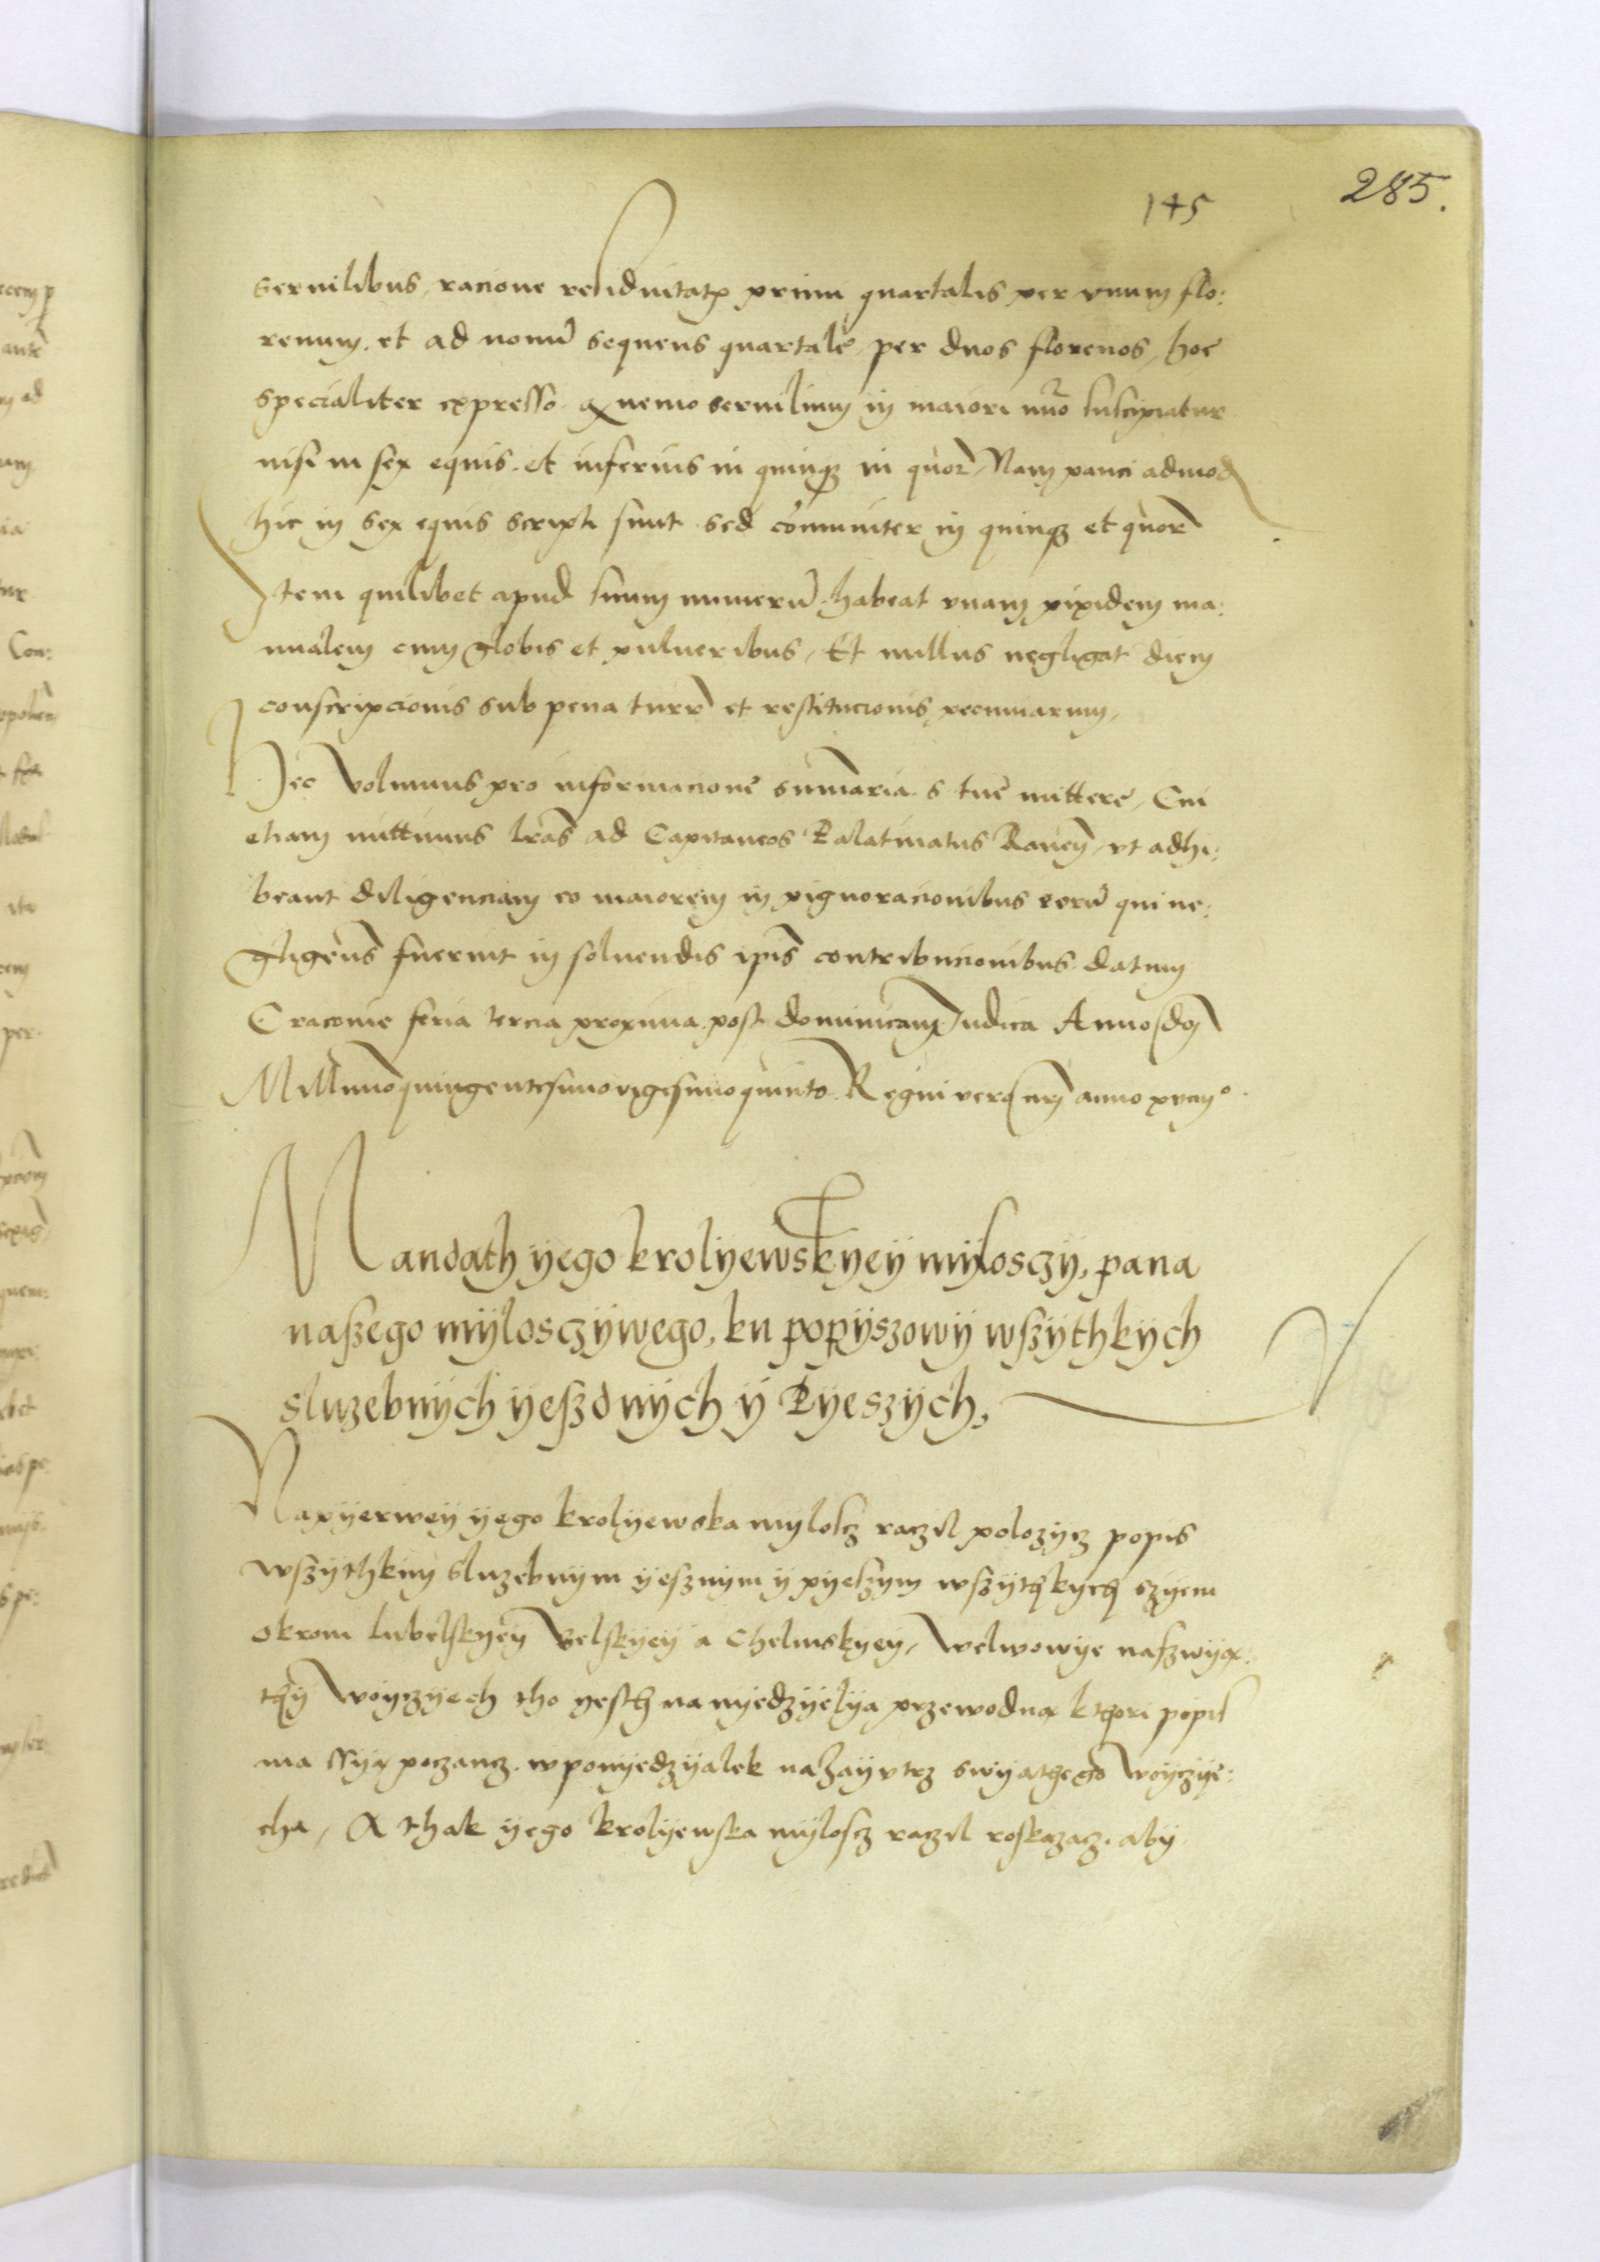 145
285.
servilibus, racione residuitatis primi quartalis per unum flo:
renum. et ad novu sequens quartale, per duos florenos, hoc
specialiter expresso. q nemo servilium in maiori nuo suscipiatur
nisi in sex equis. et inferius in quinq in quor, Nam pauci admod
hic in sex equis scripti sunt. sed comuniter in quinq et quor
Item quilibet apud suum numeru. habeat unam pixidem ma:
nualem cum globis et pulveribus, Et nullus negligat diem
conscripcionis sub pena turr et restitucionis pecuniarum,
Hec Volumus pro informacione sumaria s tue mittere, Cui
etiam mittimus lras ad Capitaneos Palatinatus Raven, ut adhi:
beant diligenciam eo maiorem in pignoracionibus eoru qui ne:
gligens fuerint in solvendis ipis contribucionibus. datum
Cracovie feria tercia proxima post dominicam Judica Anno dom
Millimoquingentesimovigesimoquinto. Regni vero nri anno xviii°.
Mandath yego krolyewskyey myloszy, pana
naszego mylosczywego, ku popyszowy wszythkych
sluzebnych yeszdnych y Pyeszych,
Napyerwey yego krolyewska myloscz raczil polozycz popis
wszythkim sluzebnym yesznym y pyeszym wszythkych szyem
okrom lubelskyey Belskyey a Chelmskyey, Welwowye naszwyą:
thy Woyczyech tho yesth na nyedzyelya przewodną kthori popis
ma ssyą poczancz. wponyedzyalek nazayutrz swyathego Woyczye:
cha, A thak yego krolyewska mylosc raczil roskazacz. aby